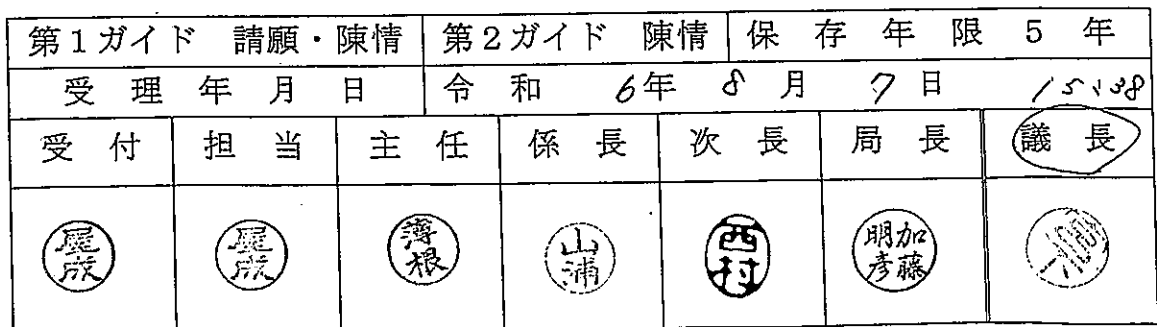 第1ガイド 請願・陳情 第2ガイド 陳情 保存年限 5年
受理年月日 令和 6年 8月 7日 15:38
受付 担当 主任 係長 次長 局長 議長
薄根 山浦 西村 加藤明彦